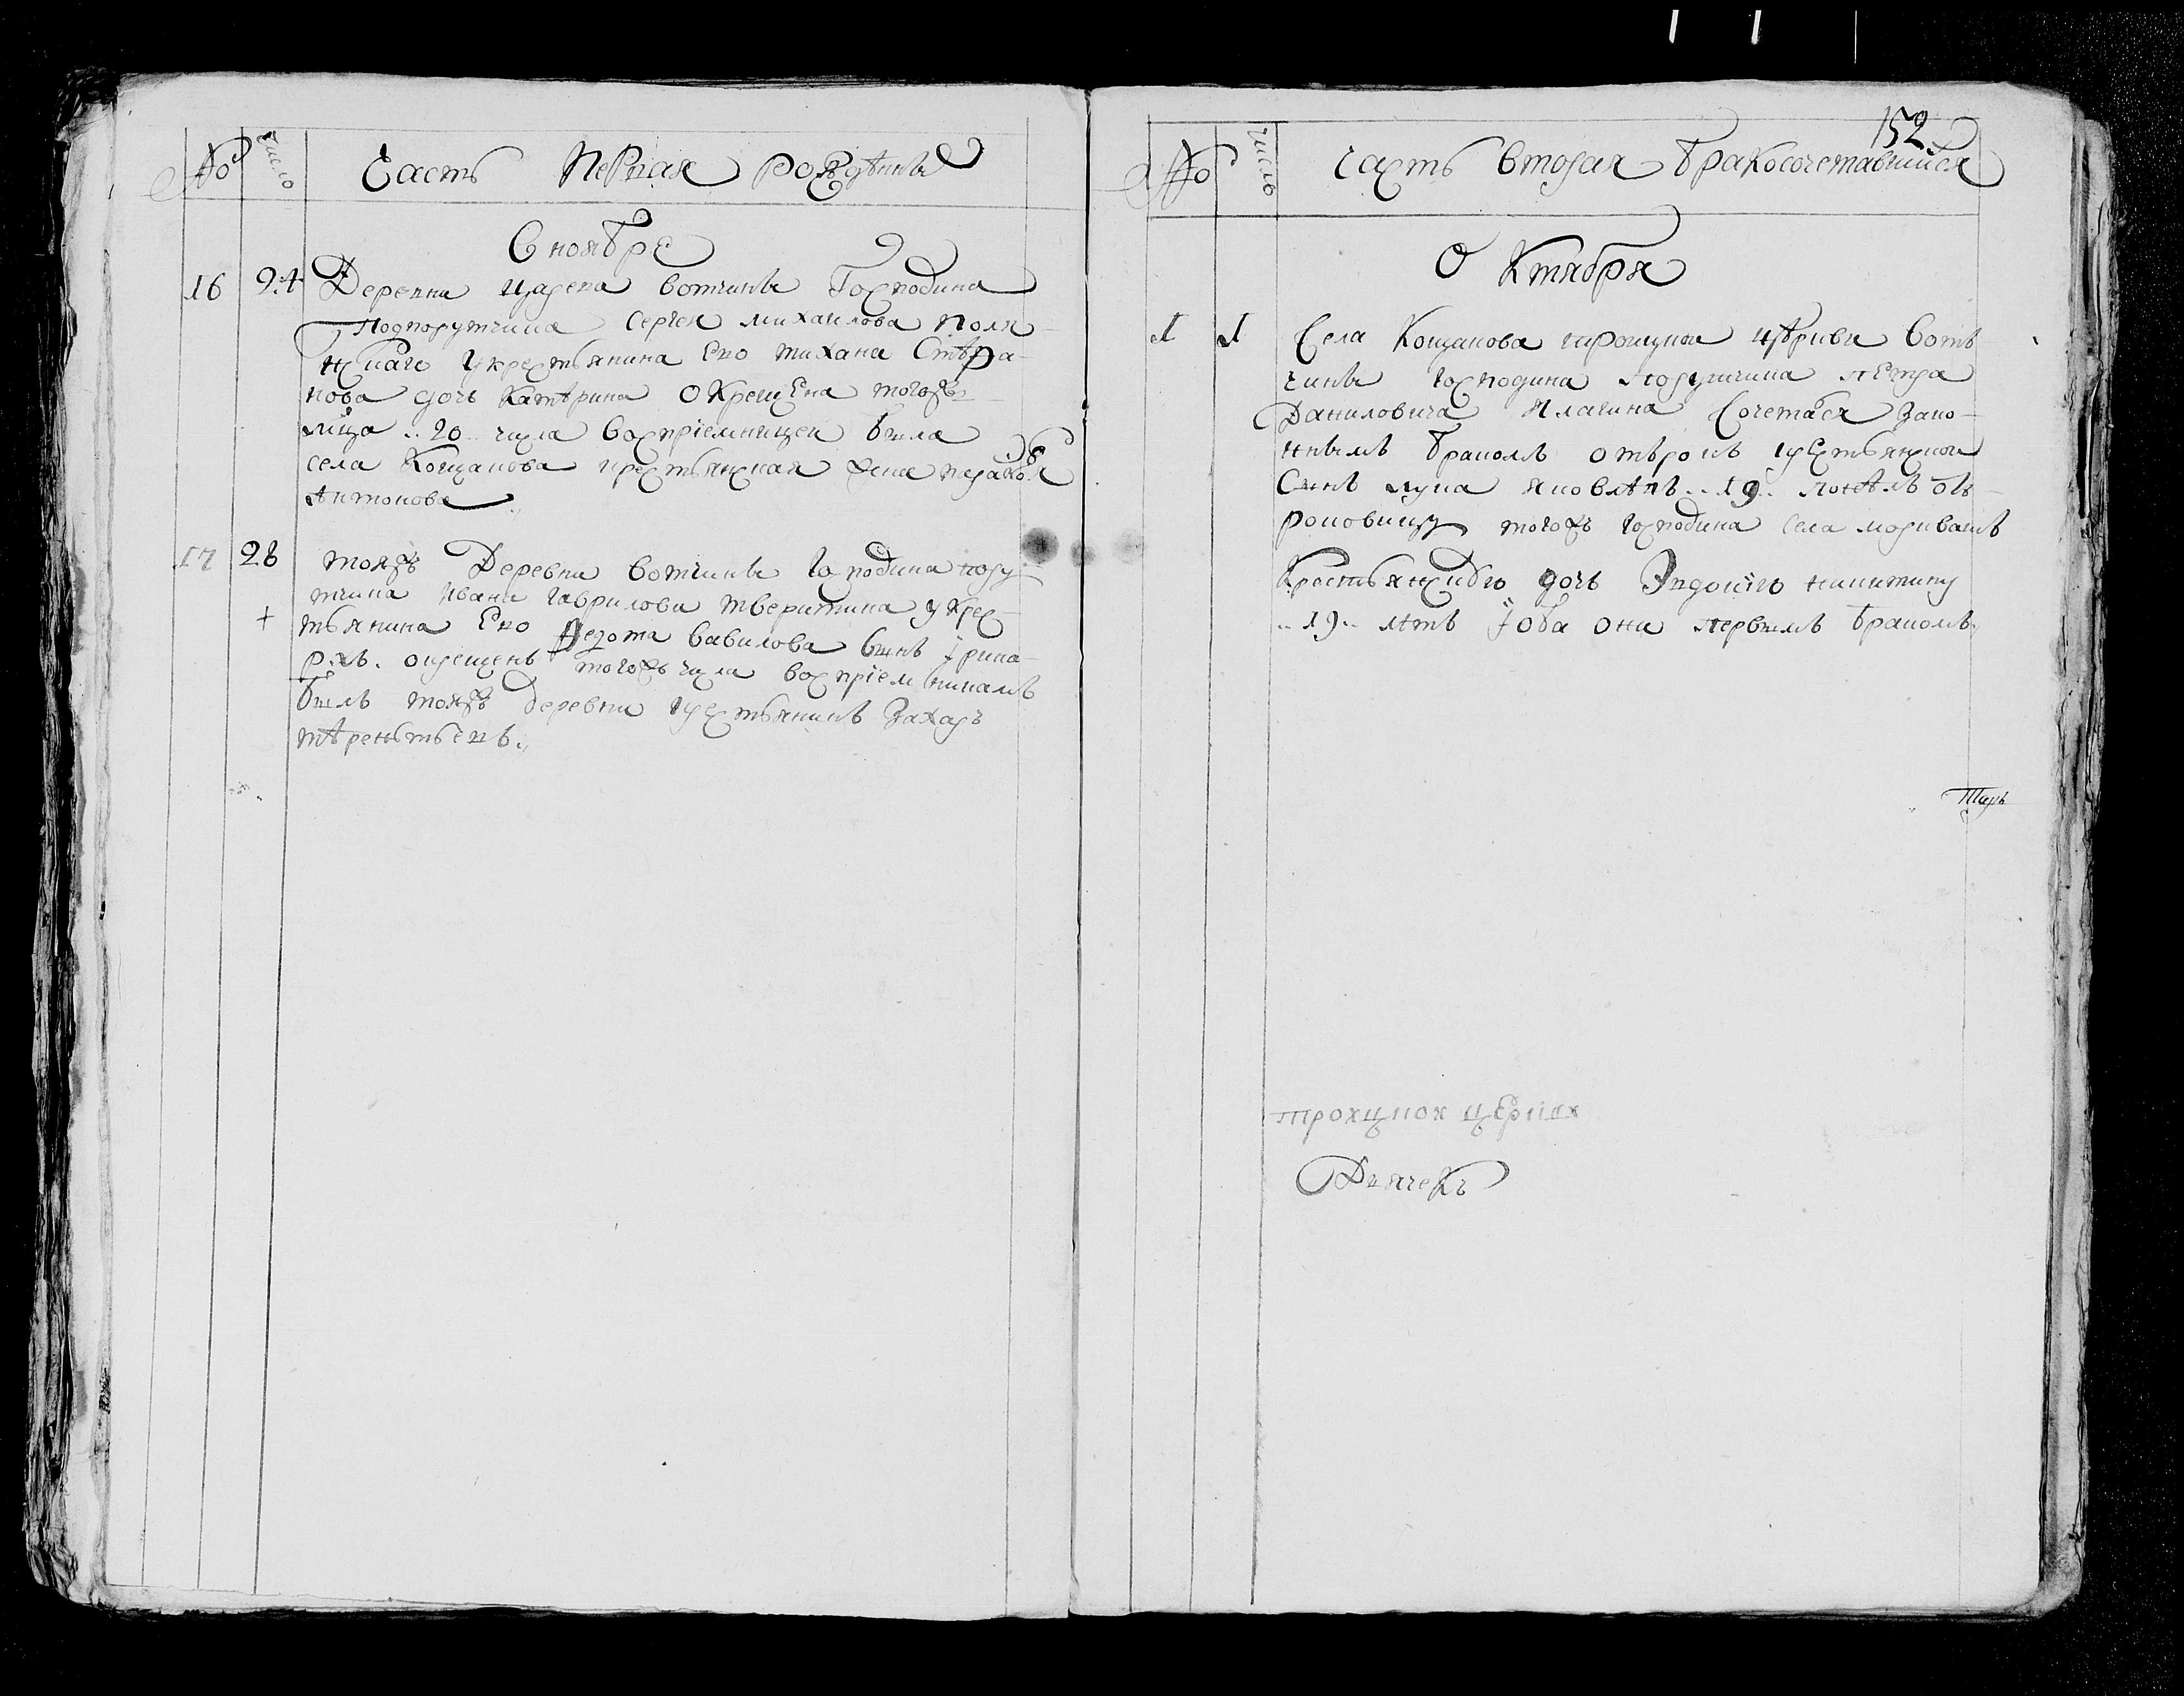 № число Часть Первая рождѣнныѣ
В ноябре
16 24 Деревни Царева вотчины Господина
Подпорутчика Сергея михаилова поля-
нскаго У крестьянина Ево тихана Стѣфа-
нова дочь катѣрина Окрещена тогожъ
мѣсяца .. 26 .. числа восприемницеи была
села Кощакова крестьянская жена
Антонова
17 28 тояжъ Деревни вотчины господина пору-
тчика Ивана гаврилова тверитина у крес-
+ тьянина Ево Федота вавилова сынъ
окрещенъ тогожъ числа восприемникамъ
былъ тояжъ деревни крестьянинъ Захаръ
тѣреньтьевъ.
152
№ число часть вторая бракосочетавшийся
Октября
1 1 Села Кощакова троицкои цѣркви вотъ-
чины господина порутчика петра
Даниловича Сочетася зако-
ннымъ бракомъ отърокъ крестьянскои
Сынъ лука яковлѣвъ .. 19 .. понелъ отъ-
роковицу тогожъ господина села
Крестьянскаго дочь Никитину
.. 19 .. лѣтъ Оба они первымъ бракомъ
троицкои церкви
Дьячекъ